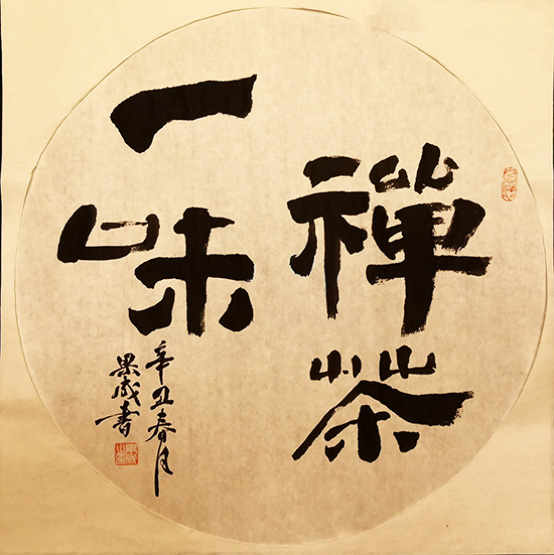 禪茶
一味
辛丑春月
果成書